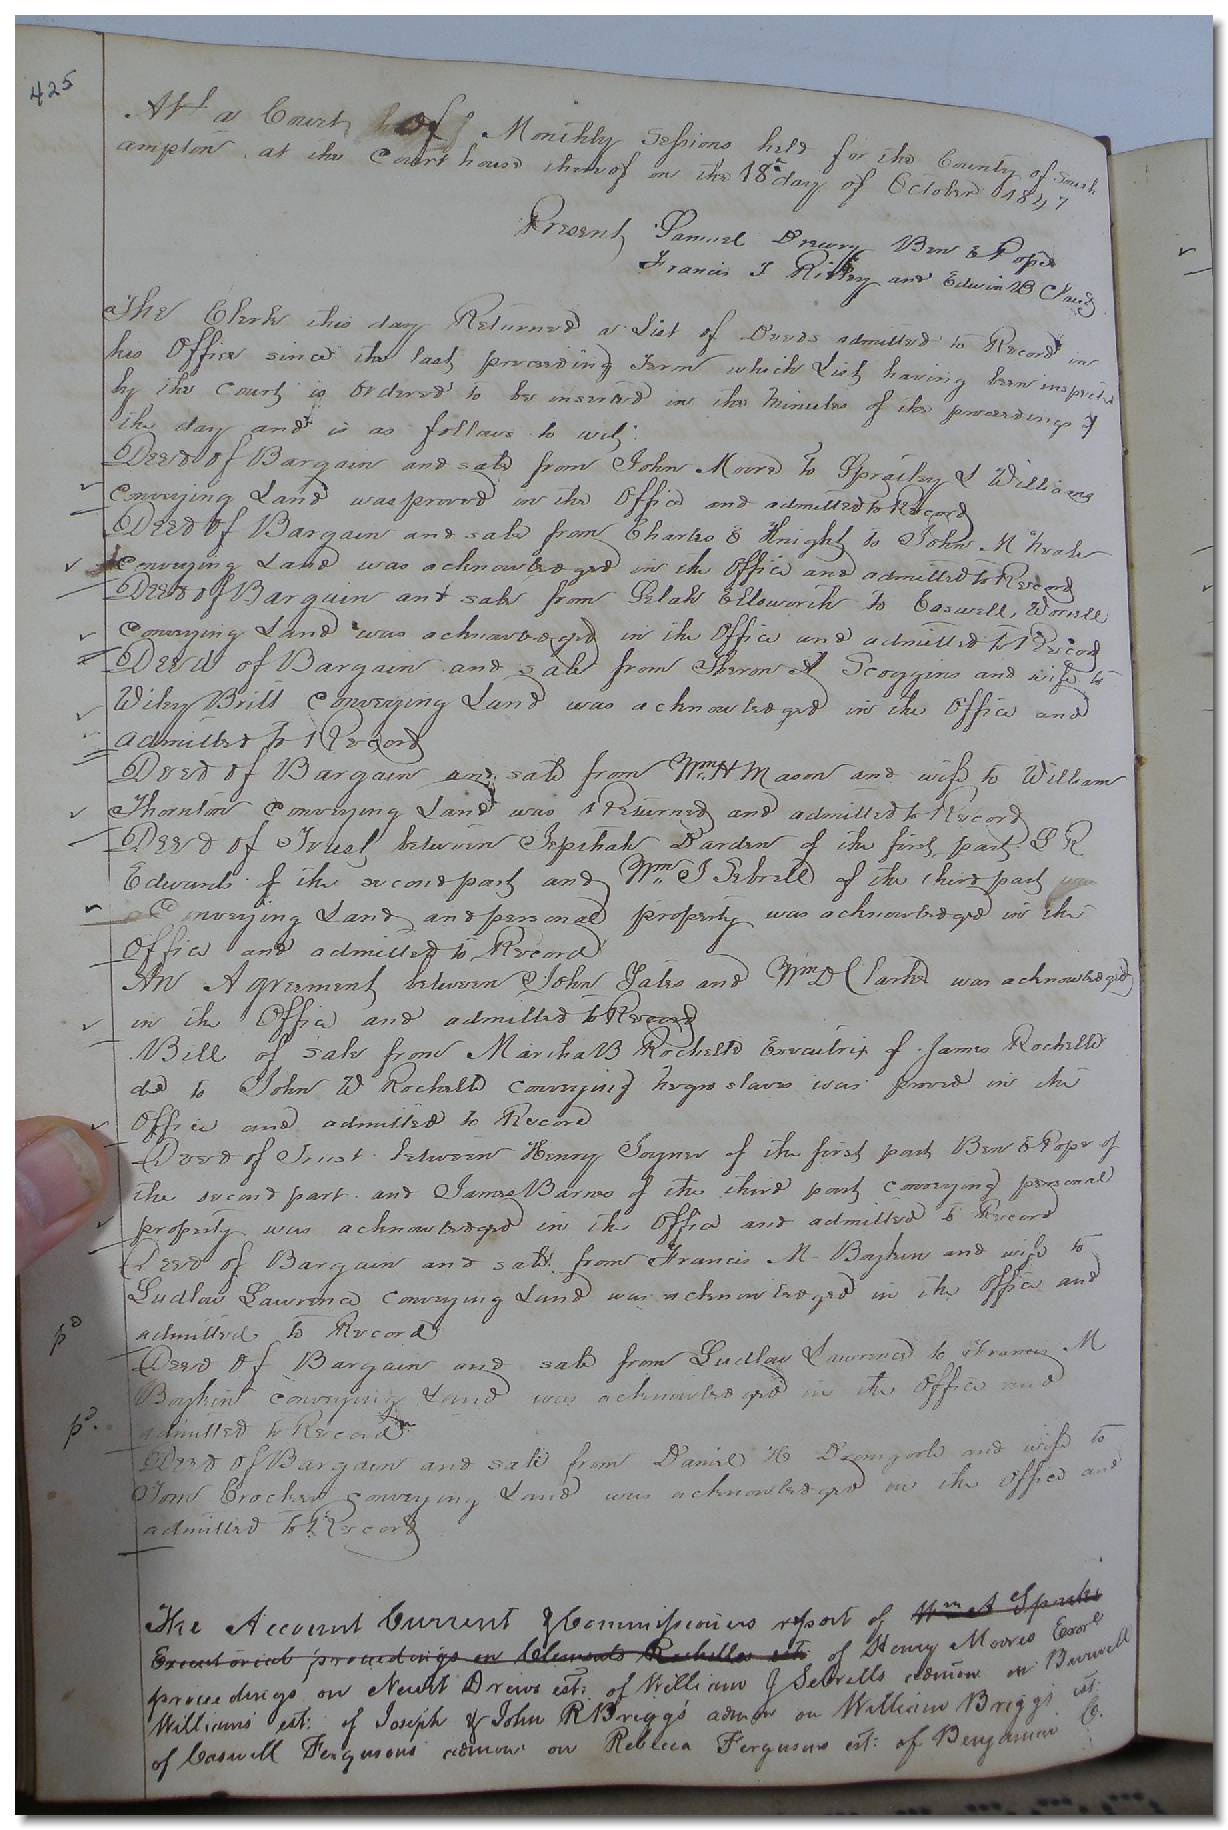 425
Att a Court of Monthly Sessions held for the County of South
ampton at the Court house thereof on the 18th day of October 1847
Present Samuel Drewry Ben E Pope
Francis T Ridley and Edwin B Claud
The Clerk this day Returned a List of Deeds admitted to Record in
his Office since the last preceeding Term which List having been inspected
by the Court is ordered to be inserted in the Minutes of the proceedings of
the day and is as follows to wit;
Deed of Bargain and sale from John Moore to Spratley & Williams
Conveying Land was proved in the Office and admitted to Record
Deed of Bargain and sale from Charles E Knight to John M
Conveying Land was acknowledged in the Office and admitted to Record
Deed of Bargain and sale from Selah Ellsworth to Caswell Worrell
Conveying Land was acknowledged in the Office and admitted to Record
Deed of Bargain and sale from A Scoggins and wife to
Wiley Britt Conveying Land was acknowledged in the Office and
admitted to Record
Deed of Bargain and sale from Wm H Mason and wife to William
Thornton Conveying Land was Returned and admitted to Record
Deed of Trust between Jepthah Darden of the first part S R
Edwards of the second part and Wm J Sebrell of the third part
Conveying Land and personal property was acknowledged in the
Office and admitted to Record
An Agreement between John Yates and Wm D Clarke was acknowledged
in the Office and admitted to Record
Bill of sale from Martha B Rochelle Executrix of James Rochelle
dd to John W Rochelle conveying negro slaves was proved in the
Office and admitted to Record
Deed of Trust between Henry Joyner of the first part Ben E Pope of
the second part and James Barnes of the third part conveying personal
property was acknowledged in the Office and admitted to Record
Deed of Bargain and sale from Francis M Boykin and wife to
Ludlow Lawrence Conveying Land was acknowledged in the Office and
pd admitted to Record
Deed of Bargain and sale from Ludlow Lawrence to Francis M
Boykin conveying Land was acknowledged in the Office and
pd admitted to Record
Deed of Bargain and sale from Daniel H Dromgoole and wife to
Tom Crocker conveying Land was acknowledged in the Office and
admitted to Record
The Account Current & Commissioners report of Wm A Sparks
Executorial proceedings on Clements Rochelles est: of Henry Moores Exorl
proceedings on Newit Drews est: of William J Sebrells admon on Burwell
Williams est: of Joseph & John R Briggs admon on William Briggs est:
of Caswell Fergusons admon on Rebecca Fergusons est: of Benjamin C.